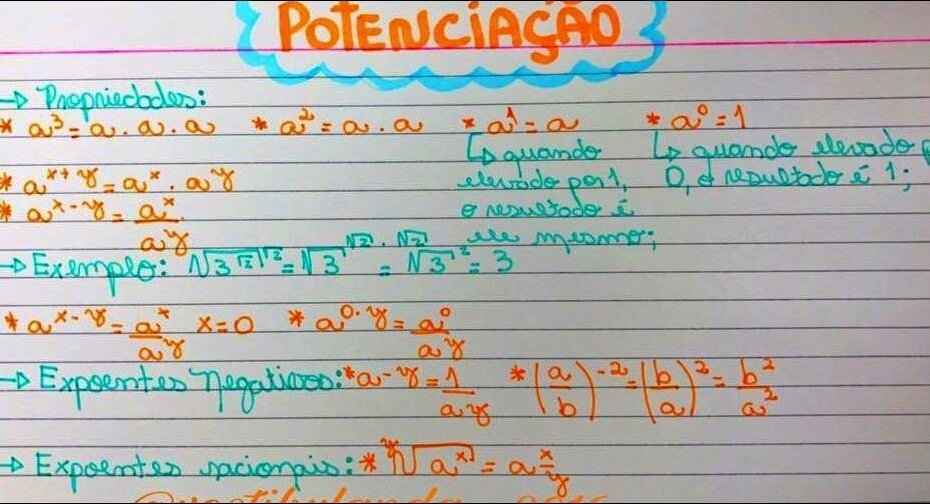 POTENCIAÇÃO
→ Propriedades:
* a³ = a . a . a * a² = a . a * a¹ = a * a⁰ = 1
↳ quando elevado por 1, o resultado é ele mesmo;
↳ quando elevado 0, o resultado é 1;
* a^(x+y) = a^x . a^y
* a^(x-y) = a^x / a^y
→ Exemplo: (√3^√2)^√2 = √3^(√2 . √2) = √3^2 = 3
* a^(x-y) = a^x / a^y x = 0 * a^(0.y) = a⁰ / a^y
→ Expoentes negativos: * a^-y = 1 / a^y * (a/b)^-2 = (b/a)^2 = b² / a²
→ Expoentes racionais: * ʸ√a^x = a^(x/y)